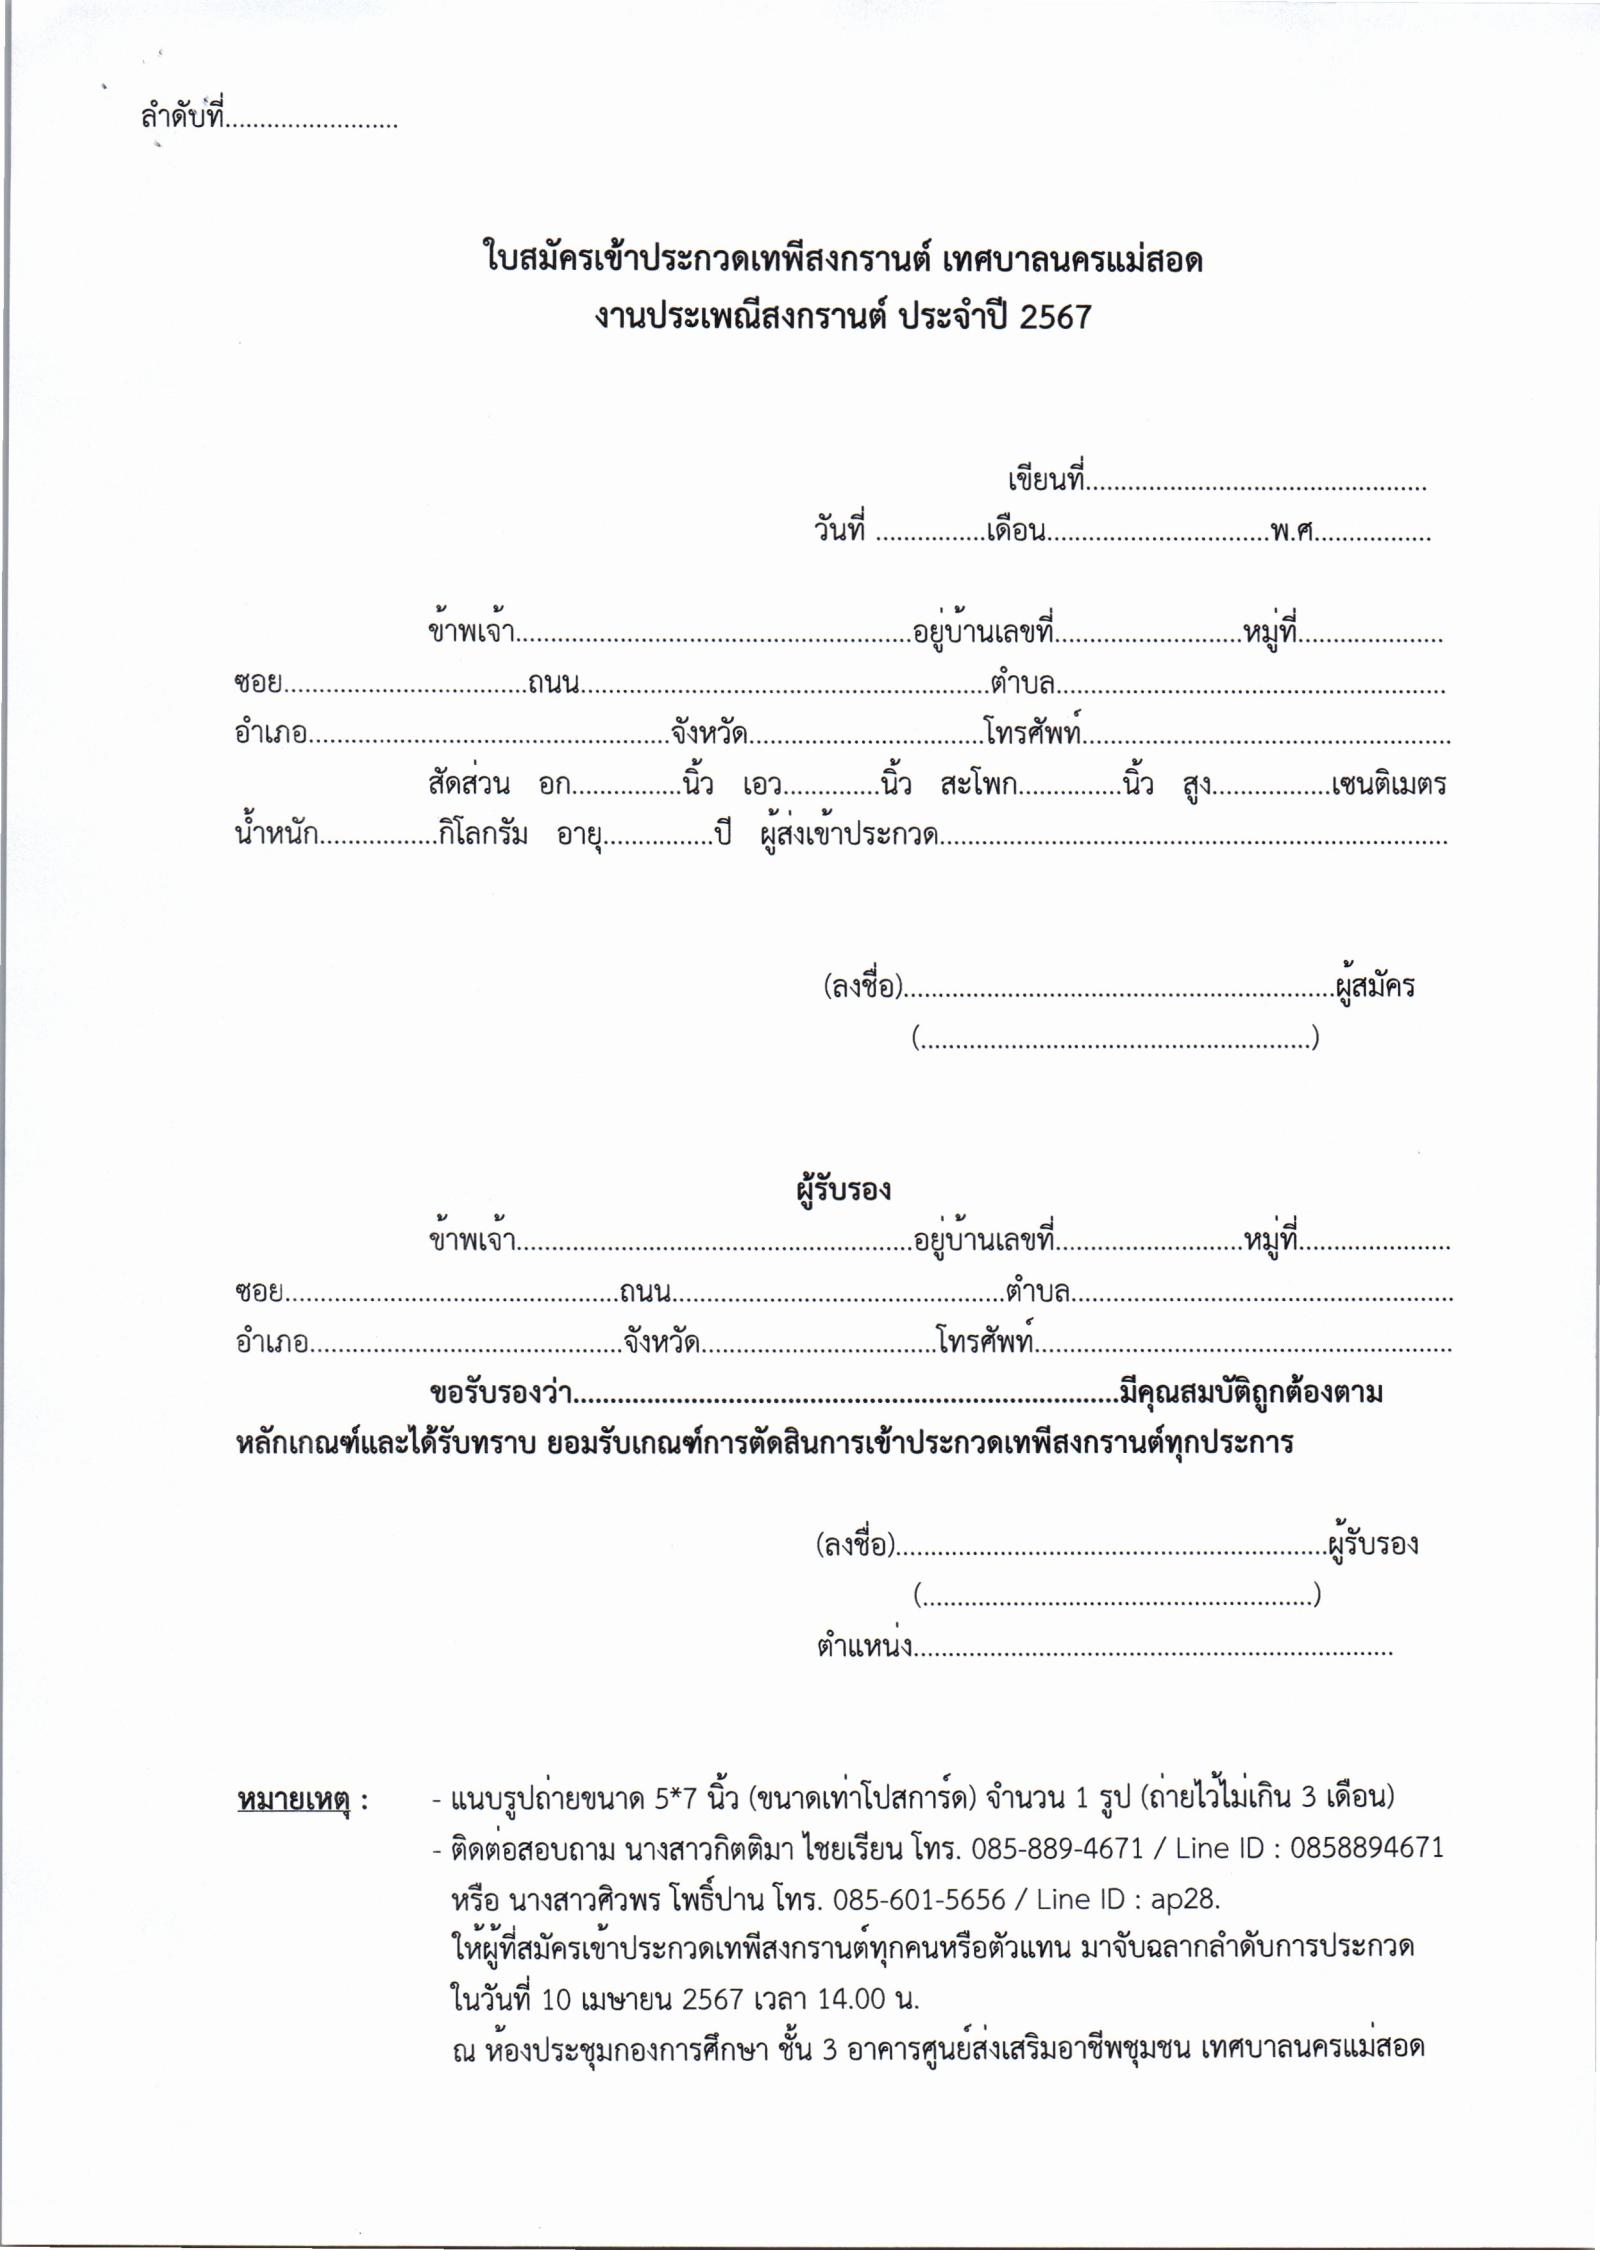 ลำดับที่.........................
ใบสมัครเข้าประกวดเทพีสงกรานต์ เทศบาลนครแม่สอด
งานประเพณีสงกรานต์ ประจำปี 2567
เขียนที่.................................................
วันที่ ................เดือน................................พ.ศ.................
ข้าพเจ้า.........................................................อยู่บ้านเลขที่...........................หมู่ที่.....................
ซอย...................................ถนน...........................................................ตำบล........................................................
อำเภอ....................................................จังหวัด..................................โทรศัพท์.....................................................
สัดส่วน อก................นิ้ว เอว..............นิ้ว สะโพก...............นิ้ว สูง.................เซนติเมตร
น้ำหนัก.................กิโลกรัม อายุ................ปี ผู้ส่งเข้าประกวด.........................................................................
(ลงชื่อ)..............................................................ผู้สมัคร
(........................................................)
ผู้รับรอง
ข้าพเจ้า.........................................................อยู่บ้านเลขที่...........................หมู่ที่......................
ซอย................................................ถนน................................................ตำบล.......................................................
อำเภอ.............................................จังหวัด..................................โทรศัพท์............................................................
ขอรับรองว่า..............................................................................มีคุณสมบัติถูกต้องตาม
หลักเกณฑ์และได้รับทราบ ยอมรับเกณฑ์การตัดสินการเข้าประกวดเทพีสงกรานต์ทุกประการ
(ลงชื่อ)..............................................................ผู้รับรอง
(........................................................)
ตำแหน่ง.....................................................................
หมายเหตุ : - แนบรูปถ่ายขนาด 5*7 นิ้ว (ขนาดเท่าโปสการ์ด) จำนวน 1 รูป (ถ่ายไว้ไม่เกิน 3 เดือน)
- ติดต่อสอบถาม นางสาวกิตติมา ไชยเรียน โทร. 085-889-4671 / Line ID : 0858894671
หรือ นางสาวศิวพร โพธิ์ปาน โทร. 085-601-5656 / Line ID : ap28.
ให้ผู้ที่สมัครเข้าประกวดเทพีสงกรานต์ทุกคนหรือตัวแทน มาจับฉลากลำดับการประกวด
ในวันที่ 10 เมษายน 2567 เวลา 14.00 น.
ณ ห้องประชุมกองการศึกษา ชั้น 3 อาคารศูนย์ส่งเสริมอาชีพชุมชน เทศบาลนครแม่สอด